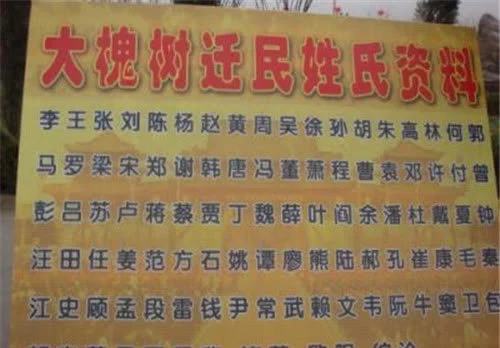 大槐树迁民姓氏资料
李王张刘陈杨赵黄周吴徐孙胡朱高林何郭
马罗梁宋郑谢韩唐冯董萧程曹袁邓许付曾
彭吕苏卢蒋蔡贾丁魏薛叶阎余潘杜戴夏钟
汪田任姜范方石姚谭廖熊陆郝孔崔康毛秦
江史顾孟段雷钱尹常武赖文韦阮牛窦卫包